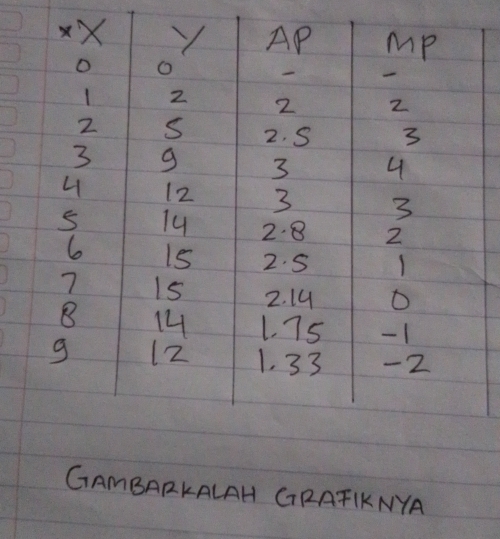 *X Y AP MP
0 0 - -
1 2 2 2
2 5 2.5 3
3 9 3 4
4 12 3 3
5 14 2.8 2
6 15 2.5 1
7 15 2.14 0
8 14 1.75 -1
9 12 1.33 -2
GAMBARKALAH GRAFIKNYA